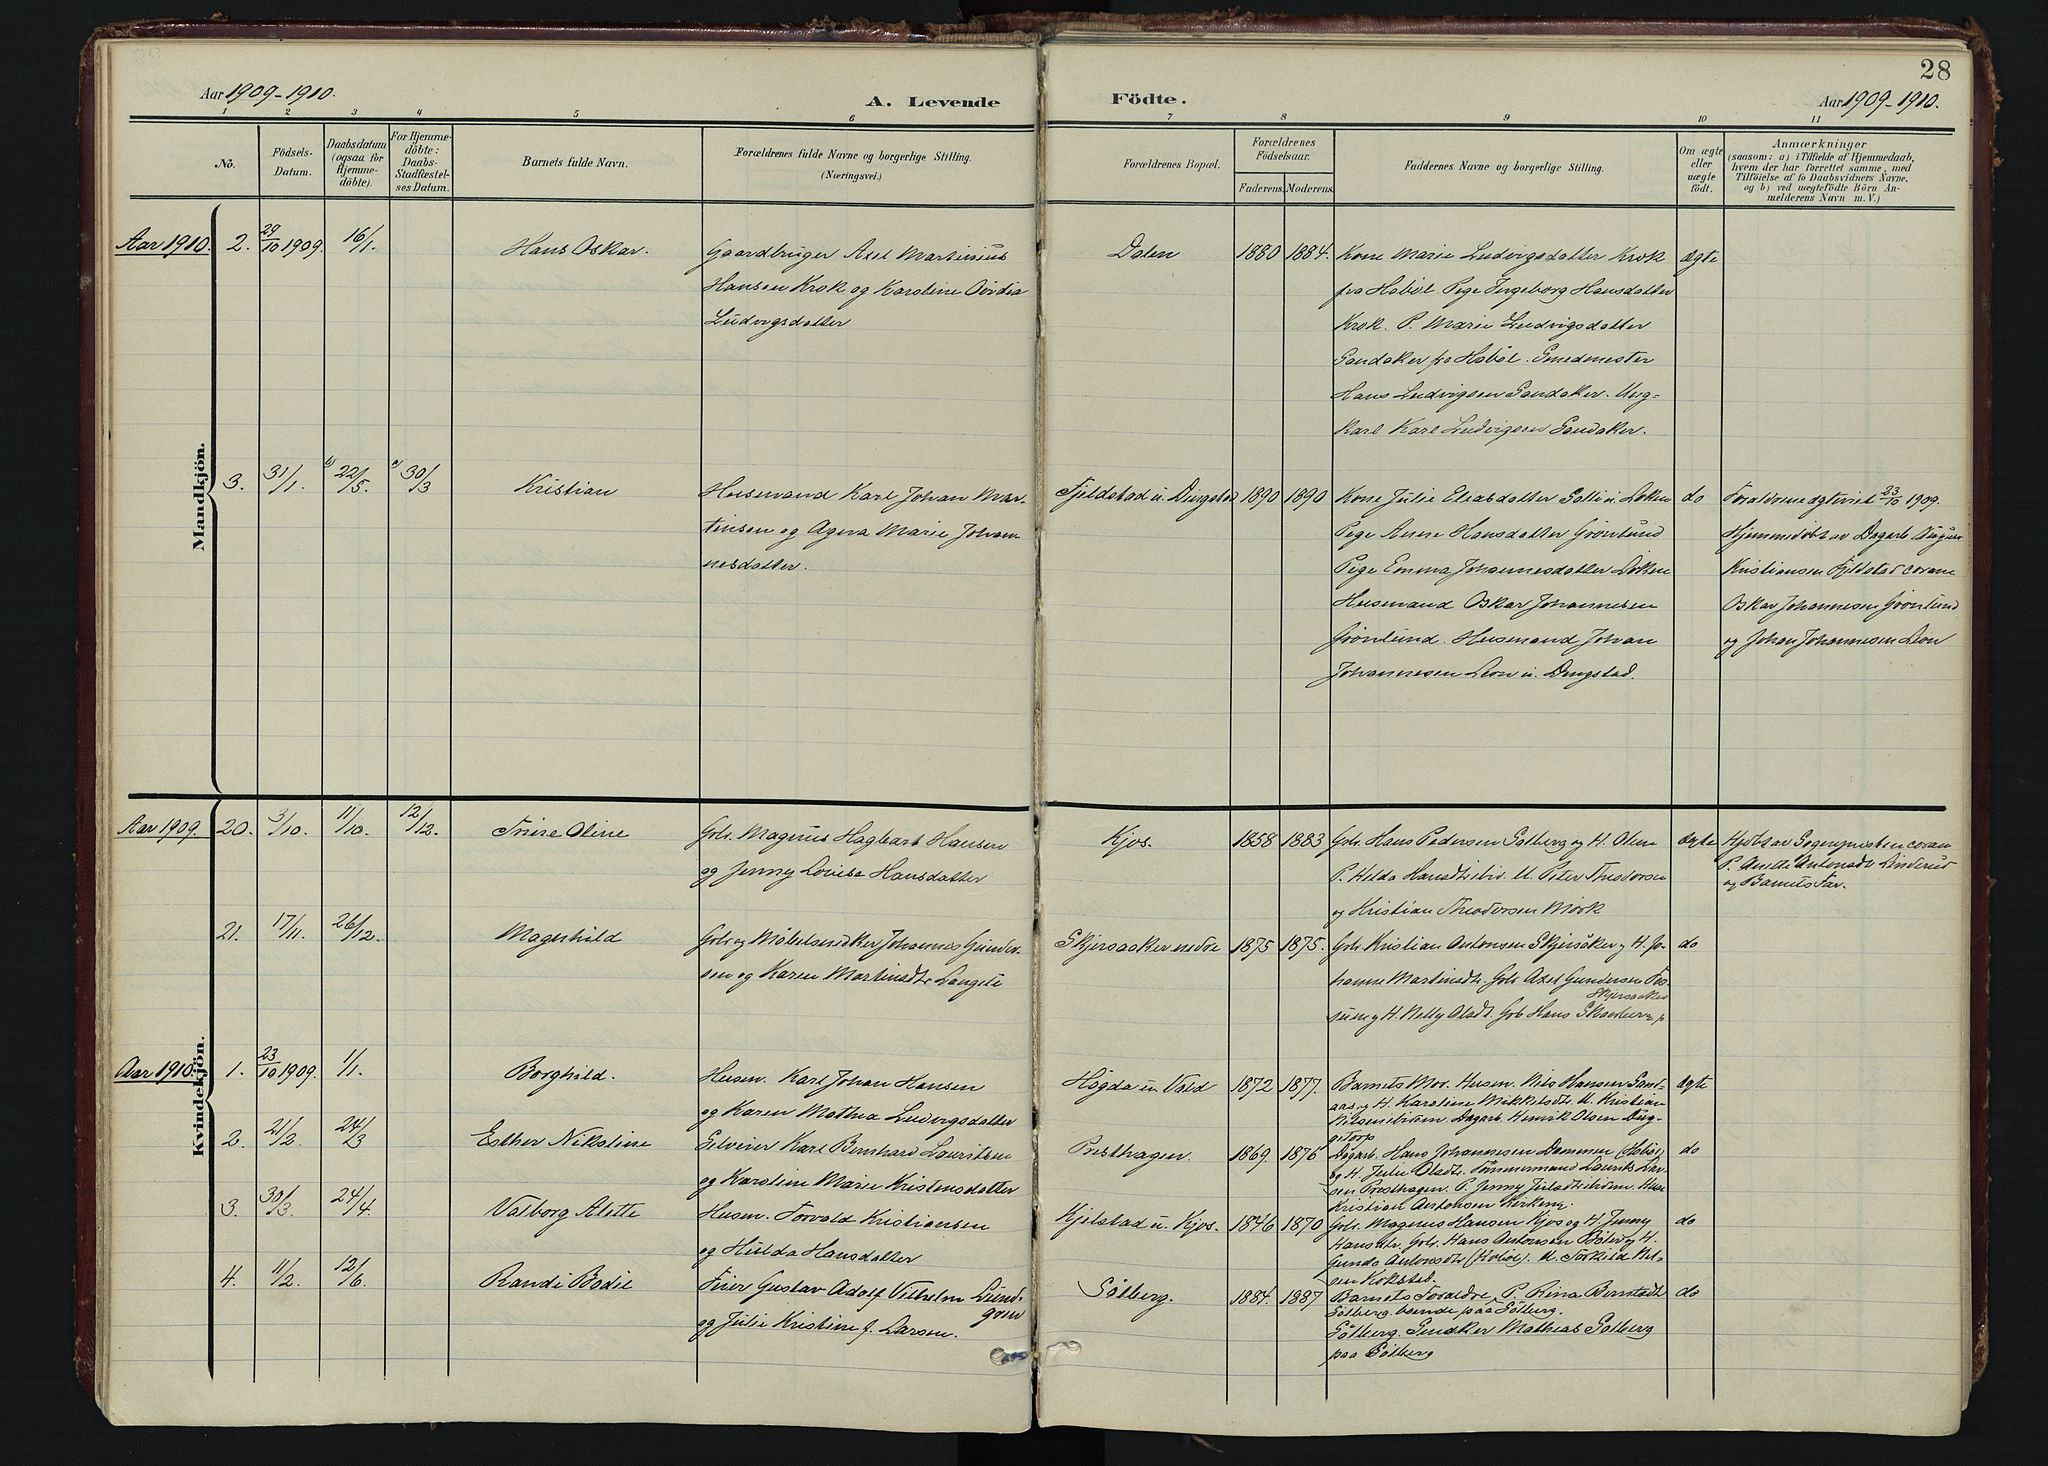 28
Aar 1909-1910.
A. Levende Födte.
Aar 1909-1910.
1 2 3 4 5 6 7 8 9 10 11
No.
Födsels-Datum.
Daabsdatum (ogsaa for Hjemmedöbte).
For Hjemmedöbte: Daabs-Stadfæstelses Datum.
Barnets fulde Navn.
Forældrenes fulde Navne og borgerlige Stilling.
(Næringsvei.)
Forældrenes Bopæl.
Forældrenes Födselsaar.
Faderens. Moderens.
Faddernes Navne og borgerlige Stilling.
Om ægte eller uægte födt.
Anmærkninger
(saasom: a) i Tilfælde af Hjemmedaab,
hvem der har forrettet samme, med
Tilföielse af to Daabsvidners Navne.
og b) ved uegtefödte Börn An-
melderens Navn m. V.)
Mandkjön.
Aar 1910. 2. 29/10 1909. 16/1. Hans Oskar.
Gaardbruger Axel Martinius
Hansen Krok og Karoline Ovidia
Ludvigsdatter
Dalen 1880 1884.
Kone Marie Ludvigsdatter Krok
fra Hobøl. Pige Ingeborg Hansdatter
Krok. P. Marie Ludvigsdatter
Sandaker fra Hobøl. Smedmester
Hans Ludvigsen Sandaker. Ung-
karl Karl Ludvigsen Sandaker.
ægte
3. 31/1. b) 22/5. a) 30/3 Kristian
Husmand Karl Johan Mar-
tinsen og Agna Marie Johan-
nesdatter.
Fjeldstad u. Dingstad 1890 1890
Kone Julie Eleasdatter Solli u. Løken
Pige Anne Hansdatter Grønlund
Pige Emma Johannesdatter Løken
Husmand Oskar Johannesen
Grønlund. Husmand Johan
Johannesen Leon u. Dingstad.
do
Forældrene ægteviet 23/10 1909.
Hjemmedøbt av Dagarb. August
Kristiansen Fjeldstad coram
Oskar Johannesen Grønlund
og Johan Johannesen Leon
Kvindekjön.
Aar 1909. 20. 3/10. 11/10. 12/12. Trine Oline
Gbr. Magnus Hagbart Hansen
og Jenny Lovise Hansdatter
Kjos. 1858 1883
Gbr. Hans Pedersen Solberg og H. Oline
P. Hilda Hansdt. ibid. U. Peter Theodorsen
og Kristian Theodorsen Mørk
ægte
Hjdbt av Sognepresten coram
P. Anette Antonsdt. Linderud
og Barnets Far.
21. 17/11. 26/12. Magnhild
Gbr. og Møbelsnedker Johannes Gunder-
sen og Karen Martinsdtr. Langeli
Skjersaaker nedre 1875 1875.
Gbr. Kristian Antonsen Skjersåker og H. Jo-
hanne Martinsdt. Gbr. Axel Gundersen Fos-
sum og H. Nelly Olsdt. Gbr. Hans Skauberg p
Skjersaaker
do
Aar 1910. 1. 23/10 1909. 1/1. Borghild.
Husm. Karl Johan Hansen
og Karen Mathea Ludvigsdatter
Høgda u. Vold 1872 1877.
Barnets Mor. Husm. Nils Hansen Sand-
aas og H. Karoline Mikkelsdt. U. Kristian
Nilsen ibidem. Dagarb. Henrik Olsen Dug-
getorp
ægte
2. 21/2. 24/3 Esther Nikoline
Selveier Karl Bernhard Lauritsen
og Karoline Marie Kristensdatter
Presthagen. 1869. 1876
Dagarb. Hans Johannesen Dammen (Hobøl)
og H. Julie Olsdt. Tømmermand Laurits Lar-
sen Presthagen. P. Jenny ibidem. Husm
Kristian Antonsen Kirkeng.
do
3. 30/3. 24/4. Valborg Alette
Husm. Torvald Kristiansen
og Hulda Hansdatter
Kjelstad u. Kjos. 1846 1870
Gbr. Magnus Hansen Kjos og H. Jenny
Hansdtr. Gbr. Hans Antonsen Bøler og H.
Gunda Antonsdtr (Hobøl). U. Torkild Nil-
sen Kokstad.
do
4. 11/2. 12/6. Randi Bodil
Eier Gustav Adolf Vilhelm Lund-
gren
og Julie Kristine f. Larsen.
Sølberg. 1884. 1887
Barnets Forældre. P. Rina Berntsdt
Sølberg. boende paa Sølberg.
Sølberg. Snedker Mathias Solberg
paa Sølberg
do